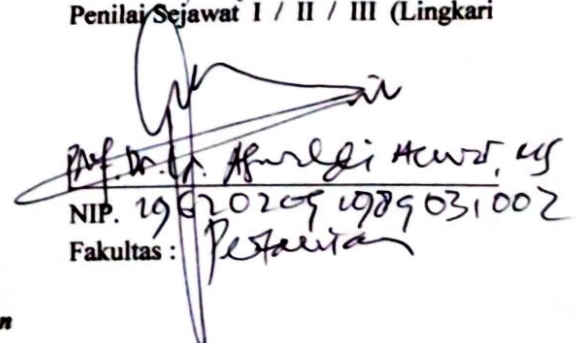 Penilai Sejawat I / II / III (Lingkari
Prof. Dr. Ir.
NIP. 19620209 198903 1 002
Fakultas : Pertanian
n